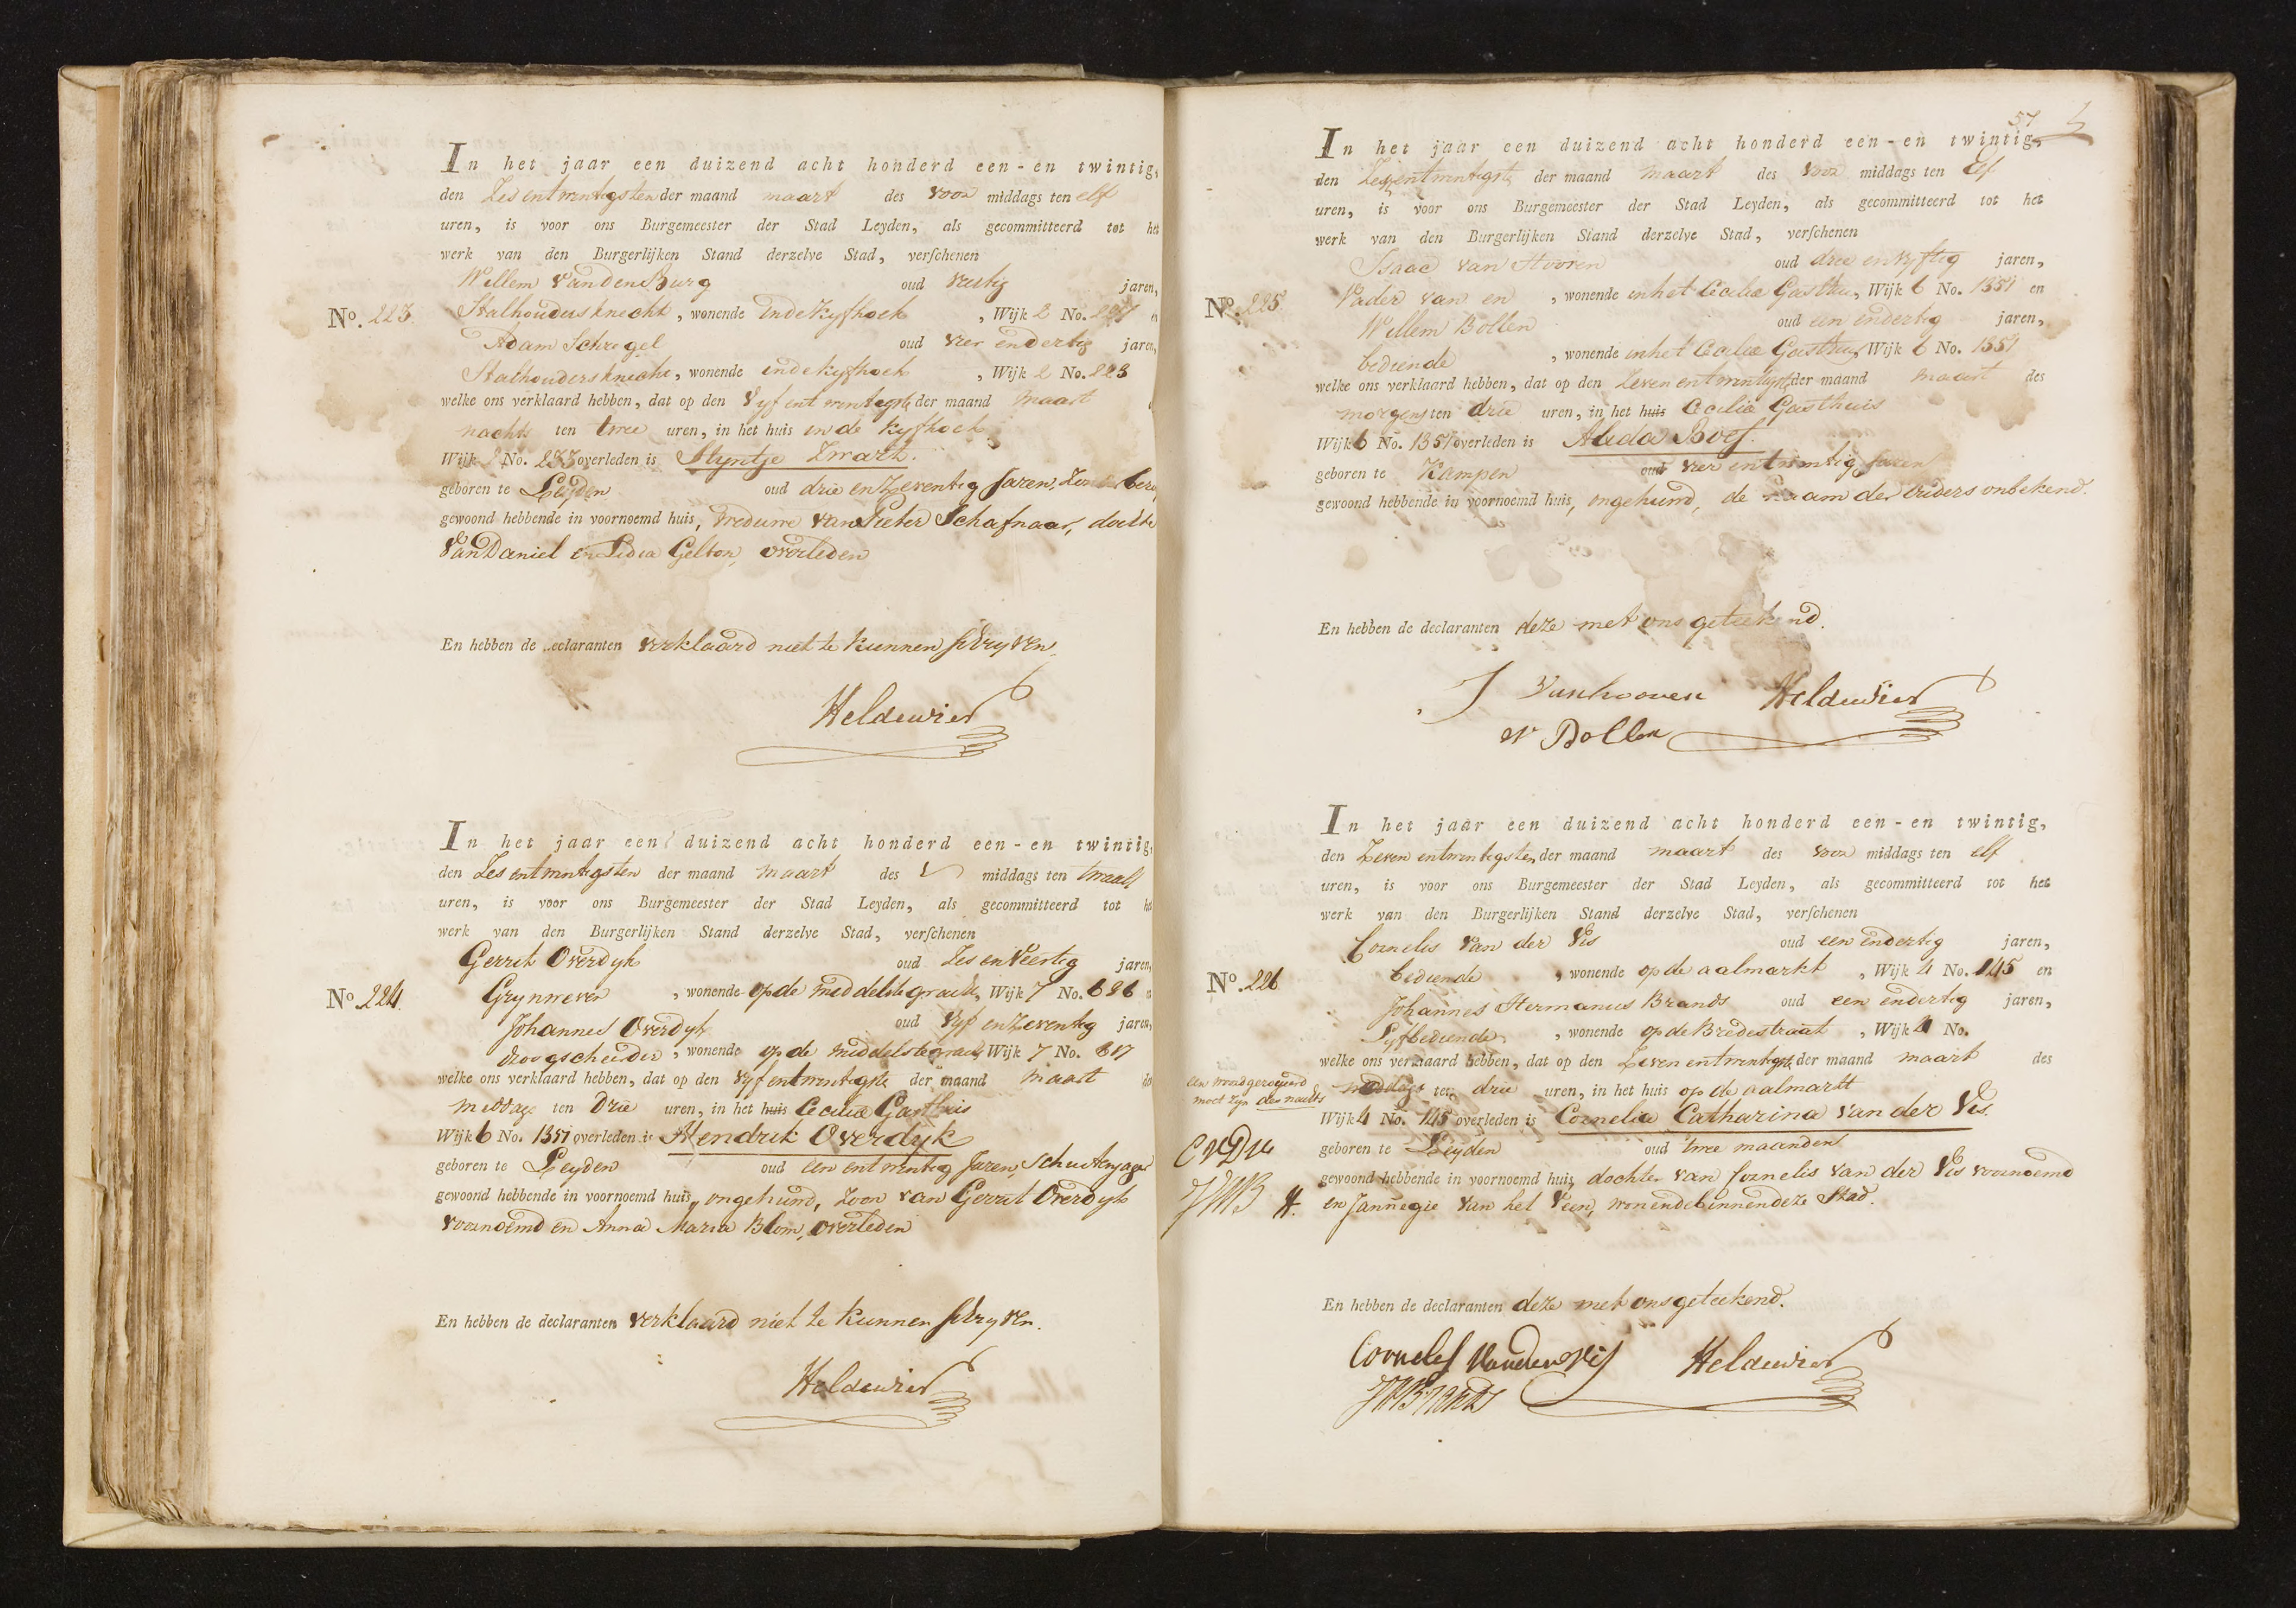 In het jaar een duizend acht honderd een-en twintig,
den Zes entwintigsten der maand maart des voor middags ten elf
uren, is voor ons Burgemeester der Stad Leyden, als gecommitteerd tot het
werk van den Burgerlijken Stand derzelve Stad, verschenen
Willem van den Burg oud jaren,
No. 223. Stalhoudersknecht, wonende inde Kyfhoek, Wijk 2 No.
Adam Schregel oud vier endertig jaren,
Stalhoudersknecht, wonende indekyfhoek, Wijk 2 No. 223
welke ons verklaard hebben, dat op den Vyf entwintigste der maand maart
nachts ten twee uren, in het huis in de Kyfhoek
Wijk 2 No. 233 overleden is Styntje Zwart.
geboren te Leyden oud drie enzeventig Jaren,
gewoond hebbende in voornoemd huis, weduwe van Pieter Schafnaar, dochter
van Daniel en Lidia Gelton, overleden
En hebben de declaranten verklaard niet te kunnen schryven.
Heldewier
In het jaar een duizend acht honderd een-en twintig,
den Zes entwintigsten der maand maart des middags ten twaalf
uren, is voor ons Burgemeester der Stad Leyden, als gecommitteerd tot het
werk van den Burgerlijken Stand derzelve Stad, verschenen
Gerrit Overdyk oud Zes enveertig jaren,
No. 224. Grynwever, wonende op de middelstegracht, Wijk 7 No. 696
Johannes Overdyk oud vyf enzeventig jaren,
droogscheerder, wonende op de middelstegracht, Wijk 7 No. 617
welke ons verklaard hebben, dat op den vyf entwintigste der maand maart des
middags ten drie uren, in het huis Cecilia Gasthuis
Wijk 6 No. 1351 overleden is Hendrik Overdyk
geboren te Leyden oud een entwintig Jaren, Schuitenjager
gewoond hebbende in voornoemd huis, ongehuwd, Zoon van Gerrit Overdyk
voornoemd en Anna Maria Blom, overleden
En hebben de declaranten verklaard niet te kunnen schryven.
Heldewier
57
In het jaar een duizend acht honderd een-en twintig,
den Zevenentwintigste der maand maart des voor middags ten Elf
uren, is voor ons Burgemeester der Stad Leyden, als gecommitteerd tot het
werk van den Burgerlijken Stand derzelve Stad, verschenen
Isaac van Hooven oud drie envyftig jaren,
No. 225. Vader van en, wonende inhet Cecilia Gasthuis, Wijk 6 No. 1351 en
Willem Bollen oud een endertig jaren,
bediende, wonende inhet Cecilia Gasthuis, Wijk 6 No. 1351
welke ons verklaard hebben, dat op den Zeven entwintigste der maand maart des
morgens ten drie uren, in het huis Cecilia Gasthuis
Wijk 6 No. 1351 overleden is Alida Boef.
geboren te Kampen oud vier entwintig Jaren
gewoond hebbende in voornoemd huis, ongehuwd, de naam der ouders onbekend.
En hebben de declaranten deze met ons geteekend.
J Vanhooven Heldewier
W Bollen
In het jaar een duizend acht honderd een-en twintig,
den Zeven entwintigsten der maand maart des voor middags ten elf
uren, is voor ons Burgemeester der Stad Leyden, als gecommitteerd tot het
werk van den Burgerlijken Stand derzelve Stad, verschenen
Cornelis van der Vis oud een endertig jaren,
No. 226 bediende, wonende op de aalmarkt, Wijk 4 No. 145 en
Johannes Hermanus Brands oud een endertig jaren,
Lyfbediende, wonende op de Bredestraat, Wijk 4 No.
welke ons verklaard hebben, dat op den Zeven entwintigste der maand maart des
een woord geroyeerd
moet zyn des nachts
middags ten drie uren, in het huis op de aalmarkt
Wijk 4 No. 145 overleden is Cornelia Catharina van der Vis.
CVDV
geboren te Leyden oud twee maanden
gewoond hebbende in voornoemd huis, dochter van Cornelis van der Vis voornoemd
JHB H. en Jannegie van het Veen, wonendebinnendeze Stad.
En hebben de declaranten deze met ons geteekend.
Cornelis Vander Vis Heldewier
JHBrands